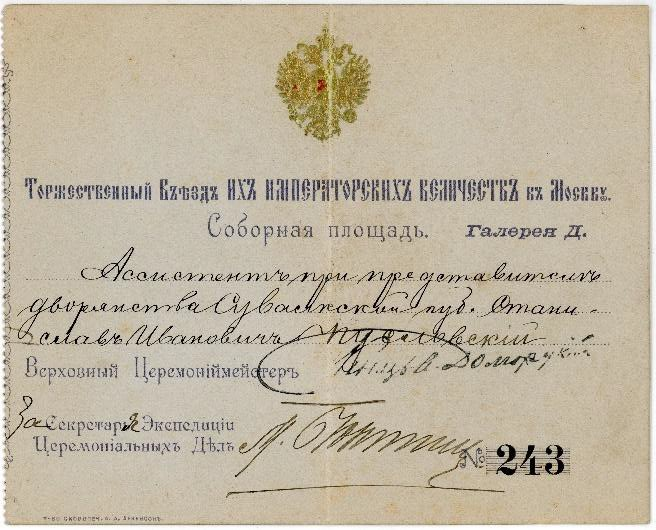 Торжественный Въѣздъ ИХЪ ИМПЕРАТОРСКИХЪ ВЕЛИЧЕСТВЪ въ Москву.
Соборная площадь. Галерея Д.
Ассистентъ при представителѣ
дворянства Сувалкской губ. Стани-
славъ Ивановичъ
Верховный Церемоніймейстеръ Князь А. Долгорукій
За Секретаря Экспедиціи
Церемоніальныхъ Дѣлъ
№ 243
Т-во Скоропеч. А. А. Левенсонъ.